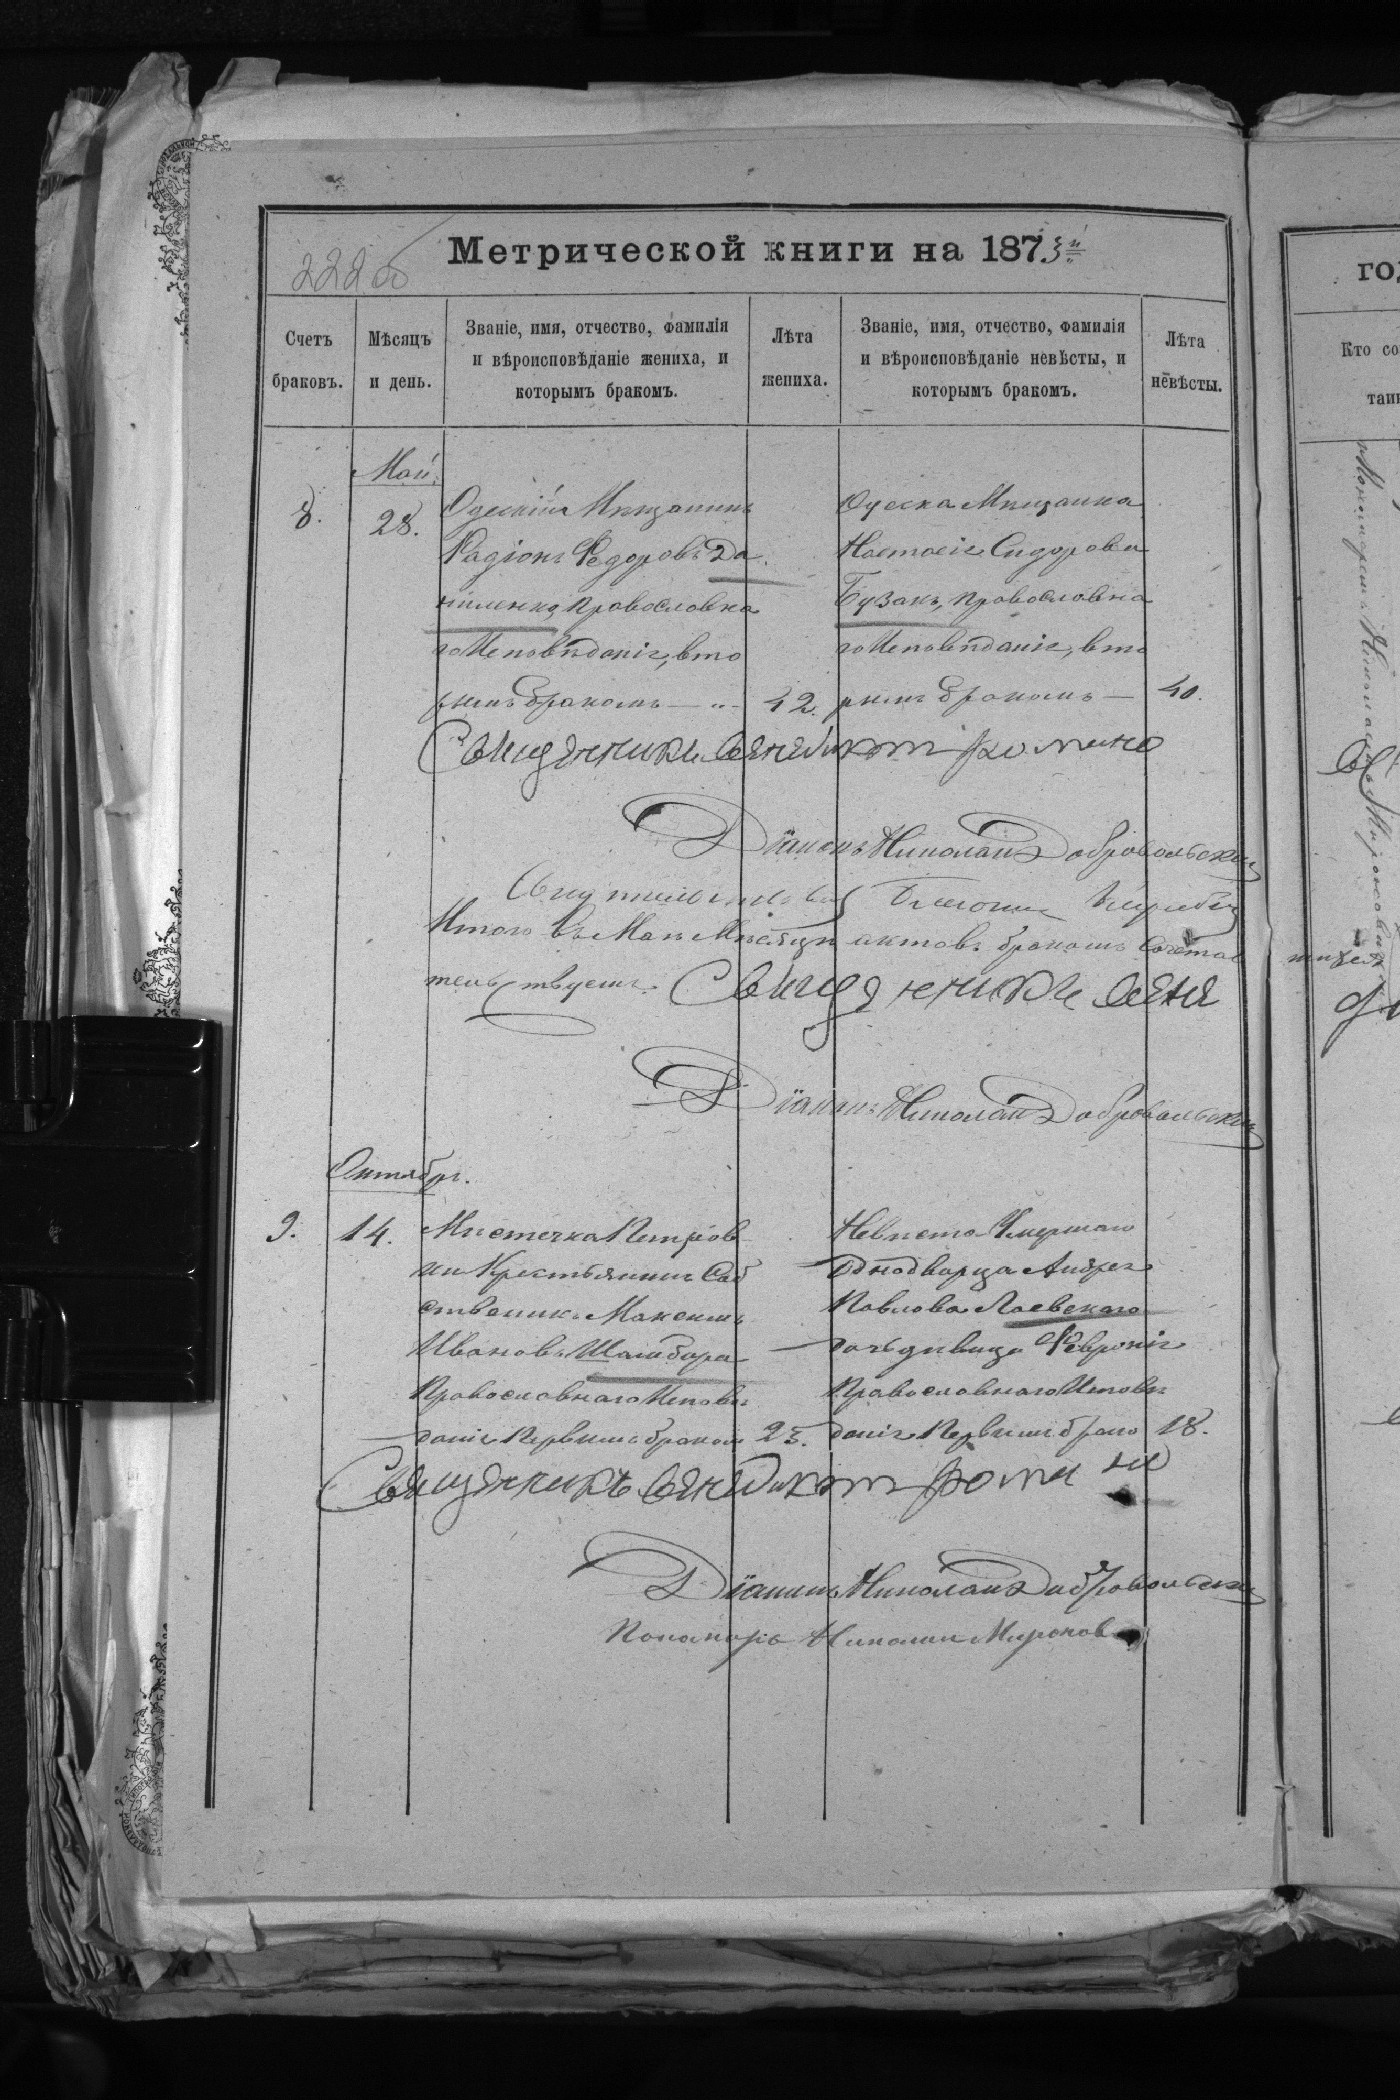 222 об
Метрической книги на 1873й
Счетъ браковъ.
Мѣсяцъ и день.
Званіе, имя, отчество, фамилія и вѣроисповѣданіе жениха, и которымъ бракомъ.
Лѣта жениха.
Званіе, имя, отчество, фамилія и вѣроисповѣданіе невѣсты, и которымъ бракомъ.
Лѣта невѣсты.
Май.
8.
28.
Одескій Мѣщанинъ
Радіонъ Федоровъ Да
ниленко, православна
го Исповѣданія, вто
рымъ бракомъ — „ —
42.
Одеска Мѣщанка
Настасія Сидорова
Бузакъ, православна
го Исповѣданія, вто
рымъ бракомъ —
40.
Священникъ Венедиктъ Романо
Діаконъ Николай Добровольскій
Итого въ Маѣ Мѣсяцѣ актовъ бракомъ Сочета
Священникъ Вене
Діаконъ Николай Добровольскій
Октябрь.
9.
14.
Мѣстечка Петров
ки Крестьянинъ Соб
ственикъ Максимъ
Ивановъ Шамбара
Православнаго Исповѣ
данія Первымъ бракомъ
23.
Невѣста Умершаго
Однодворца Андрея
Павлова Лаевскаго
дочь дѣвица Февронія
Православнаго Исповѣ
данія Первымъ брако
18.
Священникъ Венедиктъ Романо
Діаконъ Николай Добровольскій
Пономарь Николай Миронов
го
Кто со
таин
Пономарь Николай Мироновичъ